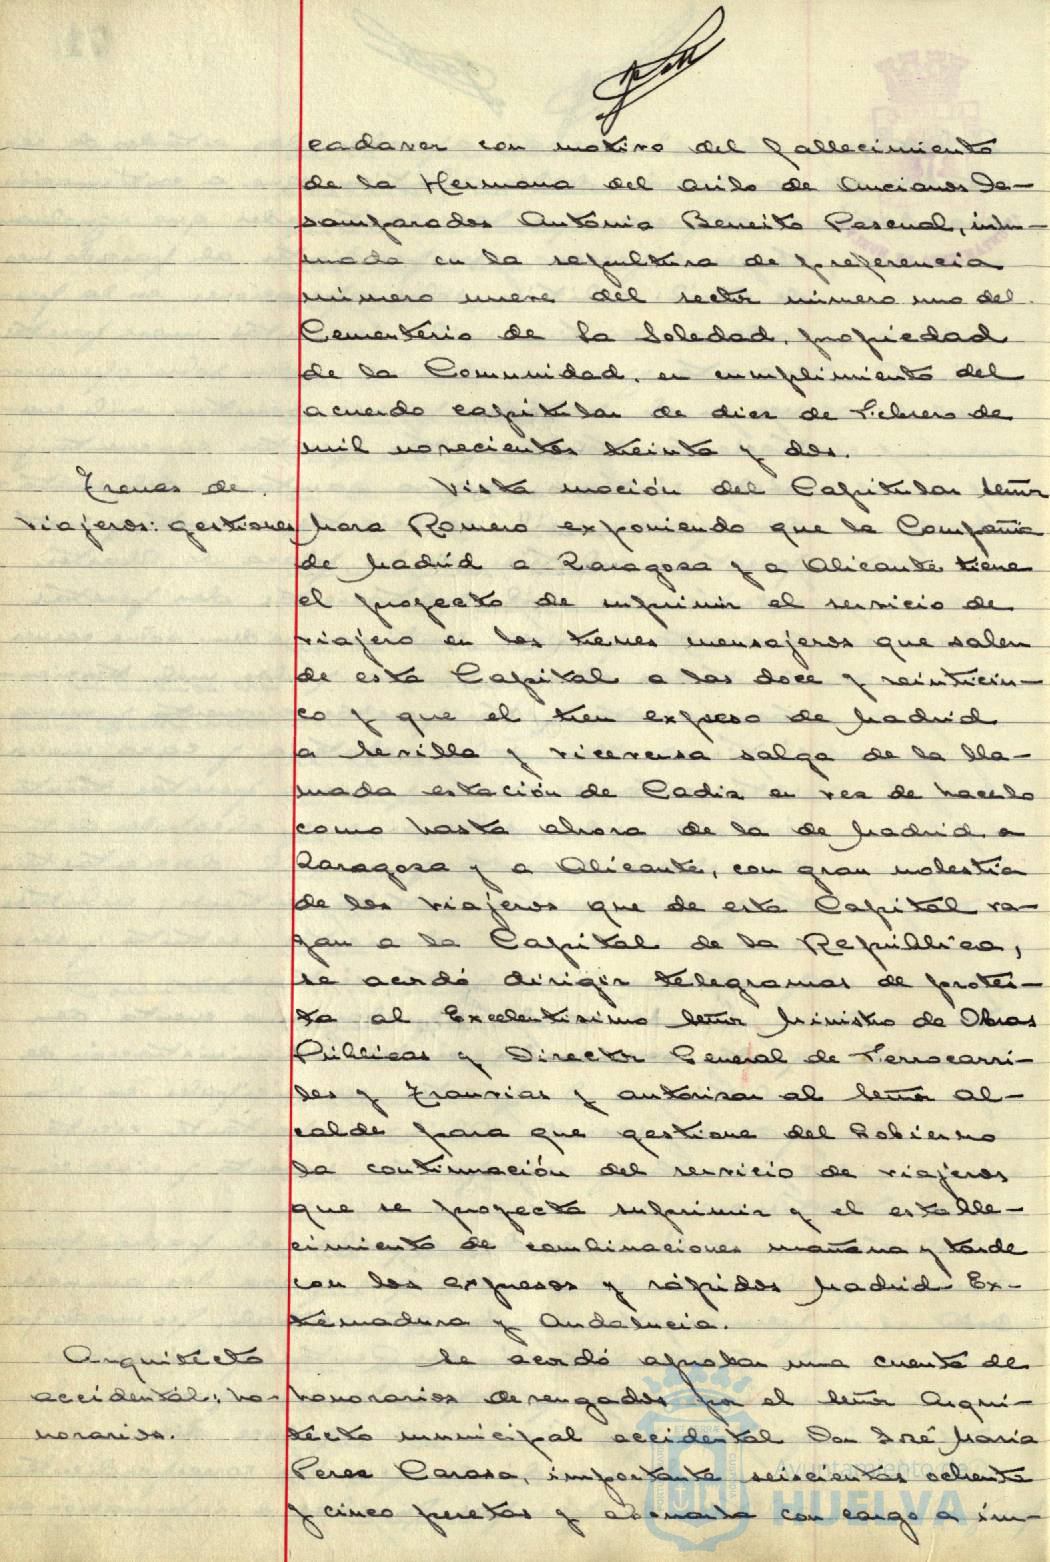 cadaver con motivo del fallecimiento
de la Hermana del asilo de Ancianos De-
samparados Antonia Beneito Pascual, inhu-
mada en la sepultura de preferencia
número nueve del sector número uno del
Cementerio de la Soledad, propiedad
de la Comunidad, en cumplimiento del
acuerdo capitular de diez de Febrero de
mil novecientos treinta y dos.
Trenes de
viajeros: gestiones
Vista moción del Capitular Señor
Mora Romero exponiendo que la Compañia
de Madrid a Zaragoza y a Alicante tiene
el proyecto de suprimir el servicio de
viajero en los trenes mensajeros que salen
de esta Capital a las doce y veinticin-
co y que el tren expreso de Madrid
a Sevilla y viceversa salga de la lla-
mada estación de Cadiz en vez de hacerlo
como hasta ahora de la de Madrid a
Zaragoza y a Alicante, con gran molestia
de los viajeros que de esta Capital va-
yan a la Capital de la República,
se acordó dirigir telegramas de protes-
ta al Excelentisimo Señor Ministro de Obras
Públicas y Director General de Ferrocarri-
les y Tranvias y autorizar al Señor Al-
calde para que gestione del Gobierno
la continuación del servicio de viajeros
que se proyecta suprimir y el estable-
cimiento de combinaciones mañana y tarde
con los expresos y rápidos Madrid Ex-
tremadura y Andalucia.
Arquitecto
accidental: ho-
norarios.
Se acordó aprobar una cuenta de
honorarios devengados por el Señor Arqui-
tecto municipal accidental Don José Maria
Perez Carasa, importante seiscientas ochenta
y cinco pesetas y abonarla con cargo a im-
Ayuntamiento de
HUELVA